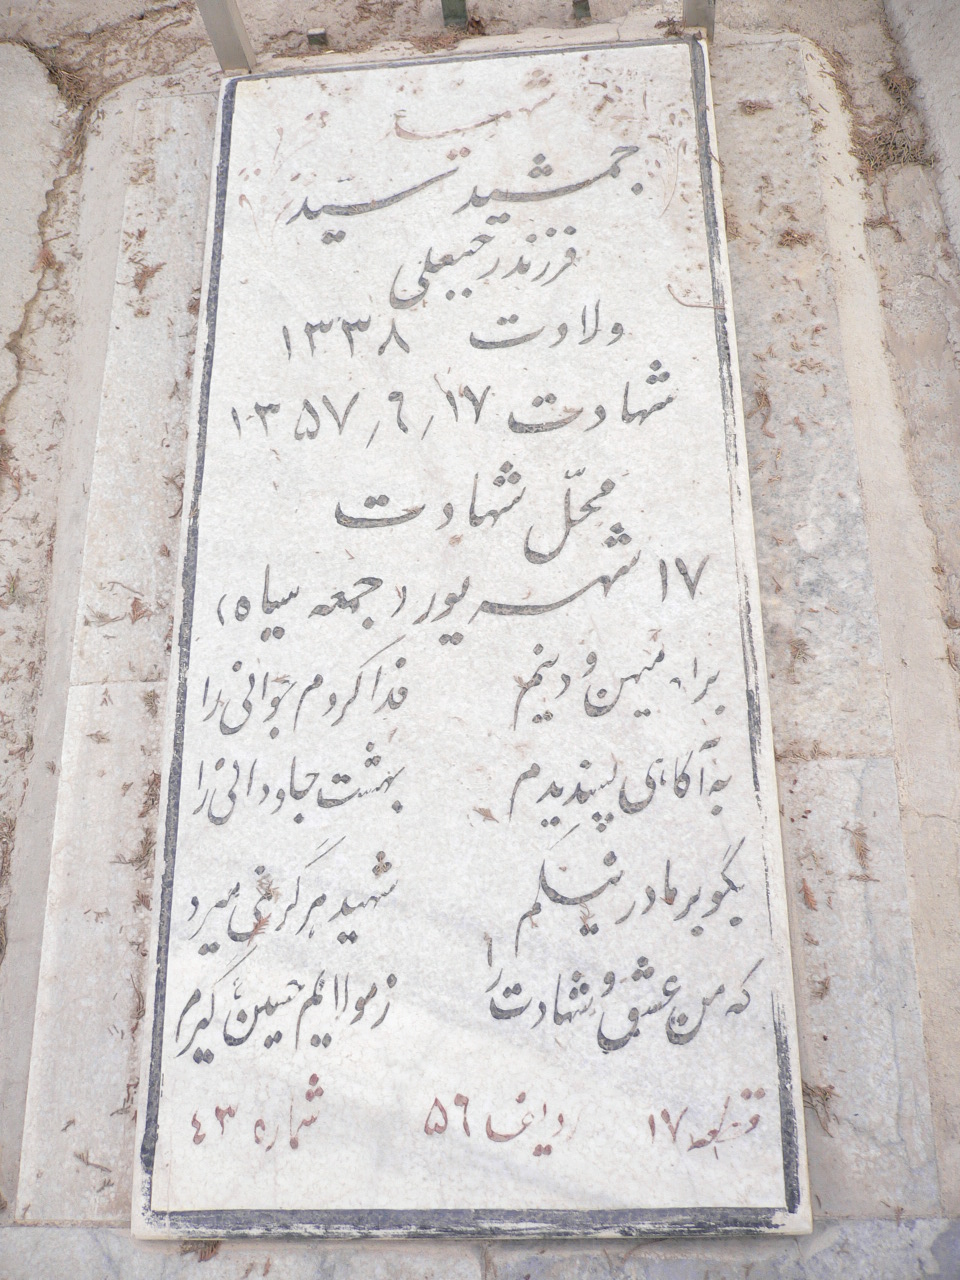 شهید
جمشید سید
فرزند رجبعلی
ولادت ۱۳۳۸
شهادت ۱۷/۶/۱۳۵۷
محلّ شهادت
۱۷ شهریور (جمعه سیاه)
برای میهن و دینم فدا کردم جوانی را
به آگاهی پسندیدم بهشت جاودانی را
بگو بر مادر شهید هرگز نمی میرد
که من عشق و شهادت را ز مولایم حسین گیرم
قطعه ۱۷ ردیف ۵۶ شماره ۴۳